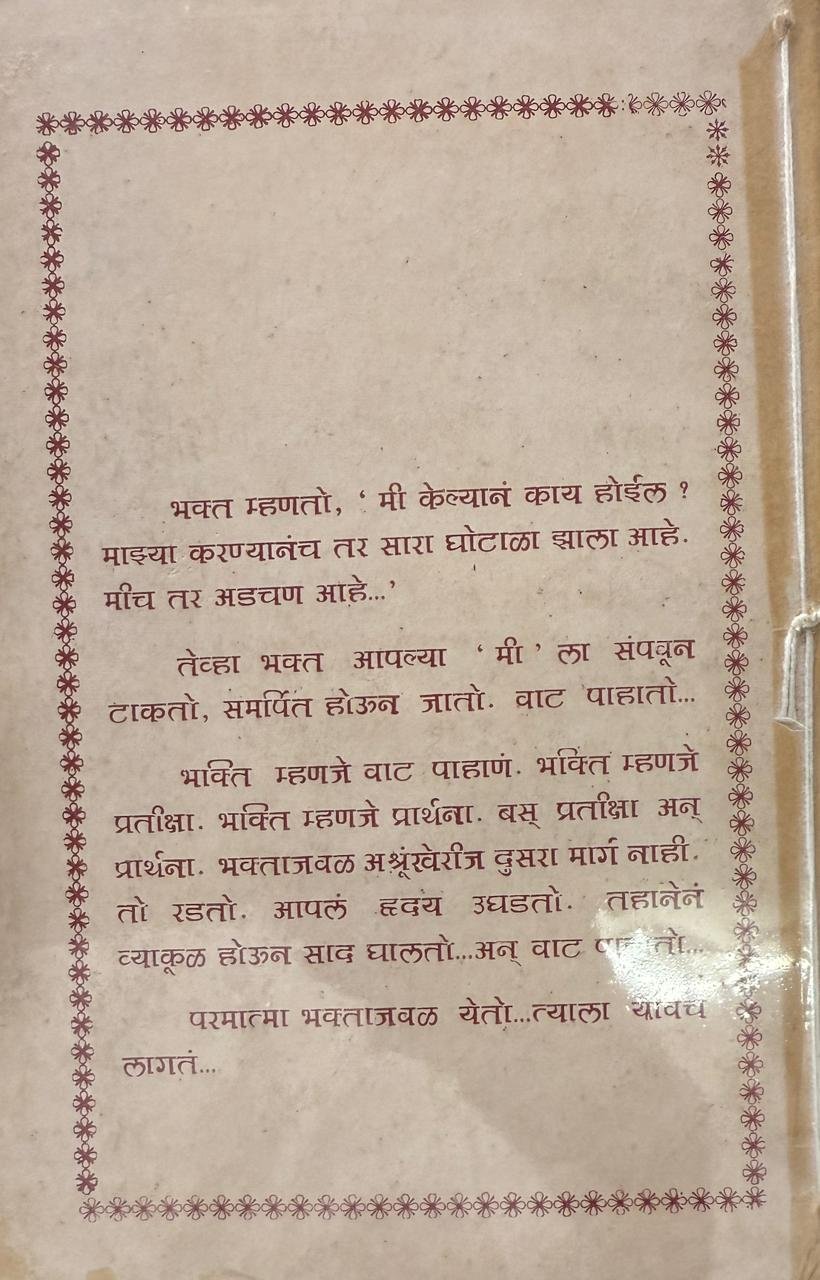 भक्त म्हणतो, ‘ मी केल्यानं काय होईल ?
माझ्या करण्यानंच तर सारा घोटाळा झाला आहे.
मीच तर अडचण आहे...’
तेव्हा भक्त आपल्या ‘ मी ’ ला संपवून
टाकतो, समर्पित होऊन जातो. वाट पाहातो...
भक्ति म्हणजे वाट पाहाणं. भक्ति म्हणजे
प्रतीक्षा. भक्ति म्हणजे प्रार्थना. बस् प्रतीक्षा अन्
प्रार्थना. भक्ताजवळ अश्रूंखेरीज दुसरा मार्ग नाही.
तो रडतो. आपलं हृदय उघडतो. तहानेनं
व्याकूळ होऊन साद घालतो...अन् वाट पाहातो...
परमात्मा भक्ताजवळ येतो...त्याला यावंच
लागतं...